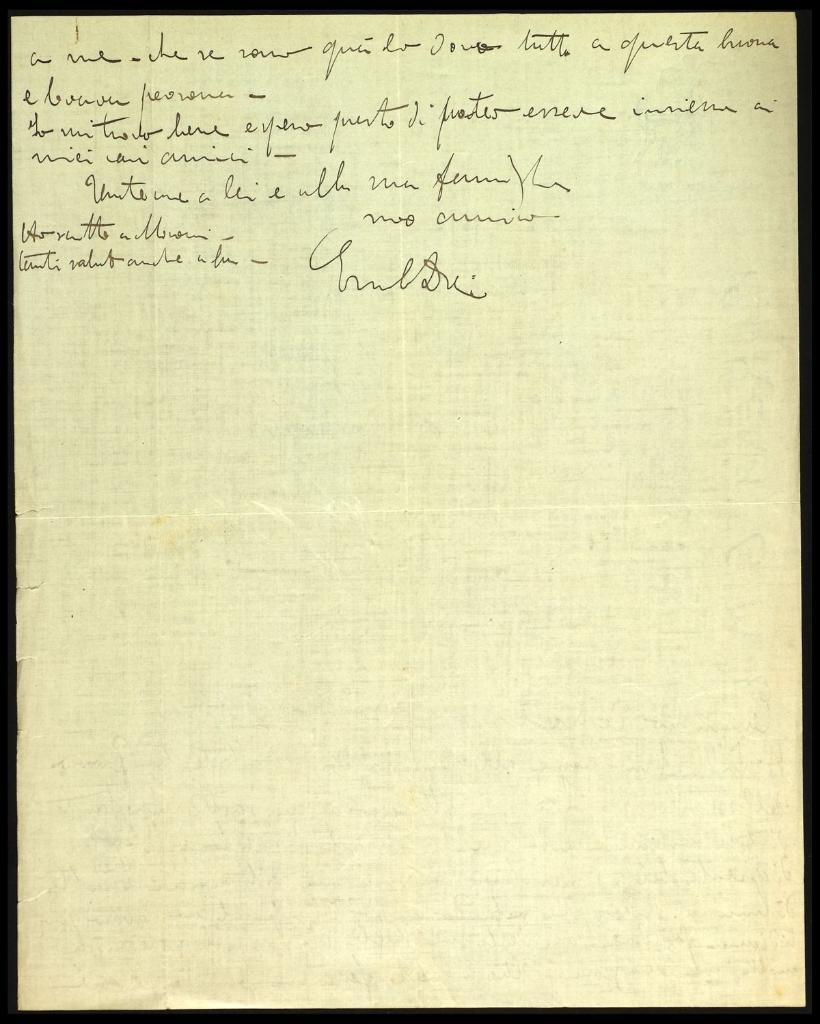 a me - che se sono quì lo devo tutto a questa buona
e brava persona -
Io mi trovo bene e spero presto di poter essere insieme ai
miei cari amici -
Unitamente a lei e alla sua famiglia
suo amico
Ho scritto a
tanti saluti anche a lui -
Ercole Drei